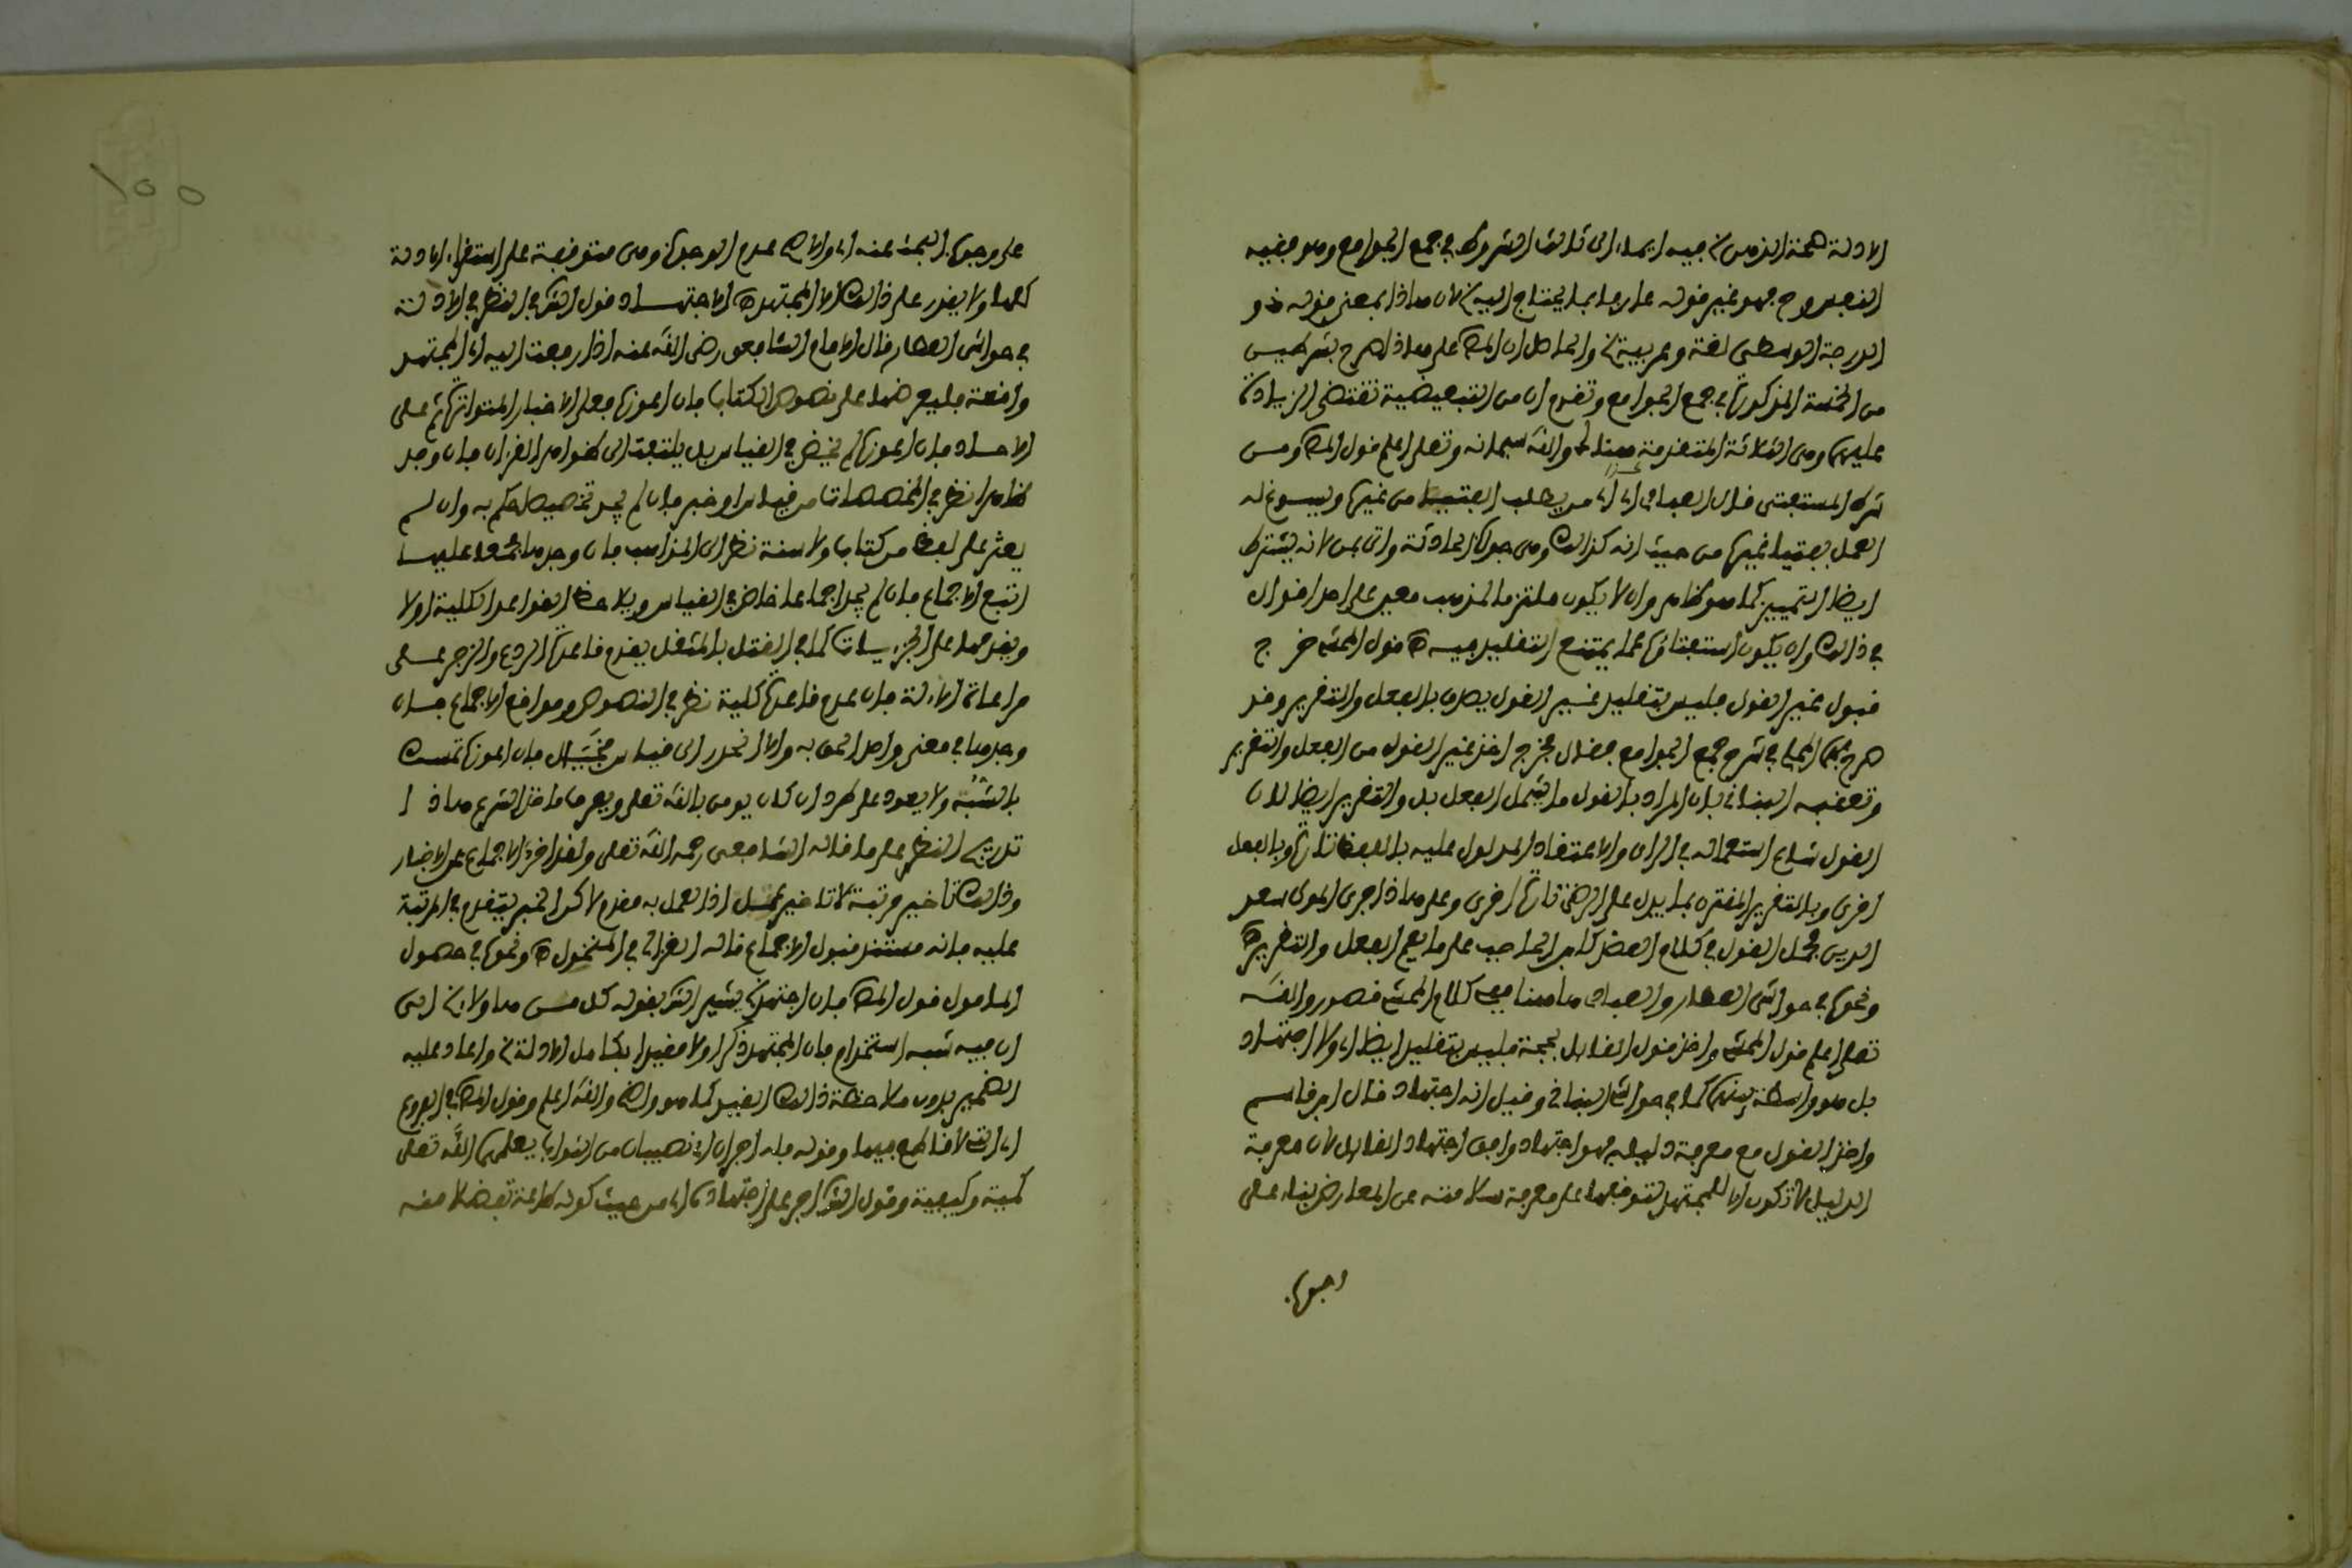 الادلة صحة الذهن فيه ايماء الى ثالث الشروط في جمع الجوامع وهو فقيه
النفس وح فهو غير قوله عارفا بما يحتاج اليه لان هاذا بمعنى قوله ذو
الدرجة الوسطى لغة وعربية والحاصل ان المص على هاذا صرح بشرطين
من الخمسة المذكورة في جمع الجوامع وتقدم ان من التبعيضية تقتضي الزيادة
عليهن وهي الثلاثة المتقدمة والله سبحانه وتعلى اعلم قول المص ومن
شرط المستفتي قال العبادي اي من يطلب الفتيا من غيره ويسوغ له
العمل بفتيا غيره من حيث انه كذالك وهي جواب الحادثة واتى بمن لانه يشترط
ايضا التمييز كما هو ظاهر وان لا يكون ملتزما لمذهب معين على احد اقوال
في ذالك وان يكون استفتاؤه مما يمتنع التقليد فيه قول المحشي خرج
قبول غير القول فليس بتقليد غير القول يصدق بالفعل والتقرير وقد
صرح به المحلي في شرح جمع الجوامع فقال فخرج اخذ غير القول من الفعل والتقرير
وتعقبه البناني بان المراد بالقول ما يشمل الفعل بل والتقرير ايضا لان
القول شاع استعماله في الراي والاعتقاد المدلول عليه باللفظ تارة وبالفعل
اخرى وبالتقرير المقترن بما يدل على الرضى تارة اخرى وعلى هاذا جرى المولى سعد
الدين فحمل القول في كلام العضد كابن الحاجب على ما يعم الفعل والتقرير اه
ونحوه في حواشي العطار والعبادي هاهنا ففي كلام المحشي قصور والله
تعلى اعلم قول المحشي واخذ قول القائل بحجة فليس بتقليد ايضا اي ولا اجتهاد
بل هو واسطة بينهما كما في حواشي البناني وقيل انه اجتهاد قال ابن قاسم
واخذ القول مع معرفة دليله فهو اجتهاد وافق اجتهاد القائل لان معرفة
الدليل لا تكون الا للمجتهد لتوقفها على معرفة سلامته عن المعارض بناء على
وجوب
على وجوب البحث عنه اي والاصح عدم الوجوب وهي متوقفة على استقراء الادلة
كلها ولا يقدر على ذالك الا المجتهد اه الاجتهاد قول الش في النظر في الادلة
في حواشي العطار قال الامام الشافعي رضي الله عنه اذا رفعت اليه اي المجتهد
واقعة فليعرضها على نصوص الكتاب فان اعوزه فعلى الاخبار المتواترة ثم على
الاحاد فان اعوزه لم يخض في القياس بل يلتفت الى ظواهر القران فان وجد
ظاهرا نظر في المخصصات من قياس او خبر فان لم يجد تخصيصا حكم به وان لم
يعثر على لفظ من كتاب ولا سنة نظر الى المذاهب فان وجدها مجمعا عليها
اتبع الاجماع فان لم يجد اجماعا خاض في القياس ويلاحظ القواعد الكلية اولا
ويقدمها على الجزييات كما في القتل بالمثقل يقدم قاعدة الردع والزجر على
مراعاة الالة فان عدم قاعدة كلية نظر في النصوص ومواقع الاجماع فان
وجدها في معنى واحد الحق به والا انحدر الى قياس مخيل فان اعوزه تمسك
بالشبه ولا يعود على طرد ان كان يومن بالله تعلى ويعرف ماخذ الشرع هاذا
تدريج النظر على ما قاله الشافعي رحمه الله تعلى ولقد اخر الاجماع عن الاخبار
وذالك تاخير مرتبة لا تاخير عمل اذ العمل به مقدم لاكن الخبر يتقدم في المرتبة
عليه فانه مستند قبول الاجماع قاله الغزالي في المنخول اه ونحوه في حصول
المامول قول المص فان اجتهد يشير الش بقوله كل من هاولاء الى
ان فيه شبه استخدام فان المجتهد ذكر اولا مقيدا بكامل الادلة واعاد عليه
الضمير بدون ملاحظة ذالك القيد كما هو واضح والله اعلم وقول المص في الفروع
اي التي لا قاطع فيها وقوله فله اجران اي نصيبان من الثواب يعلمهما الله تعلى
كمية وكيفية وقول الش اجر على اجتهاده اي من حيث كونه طاعة تفضلا منه